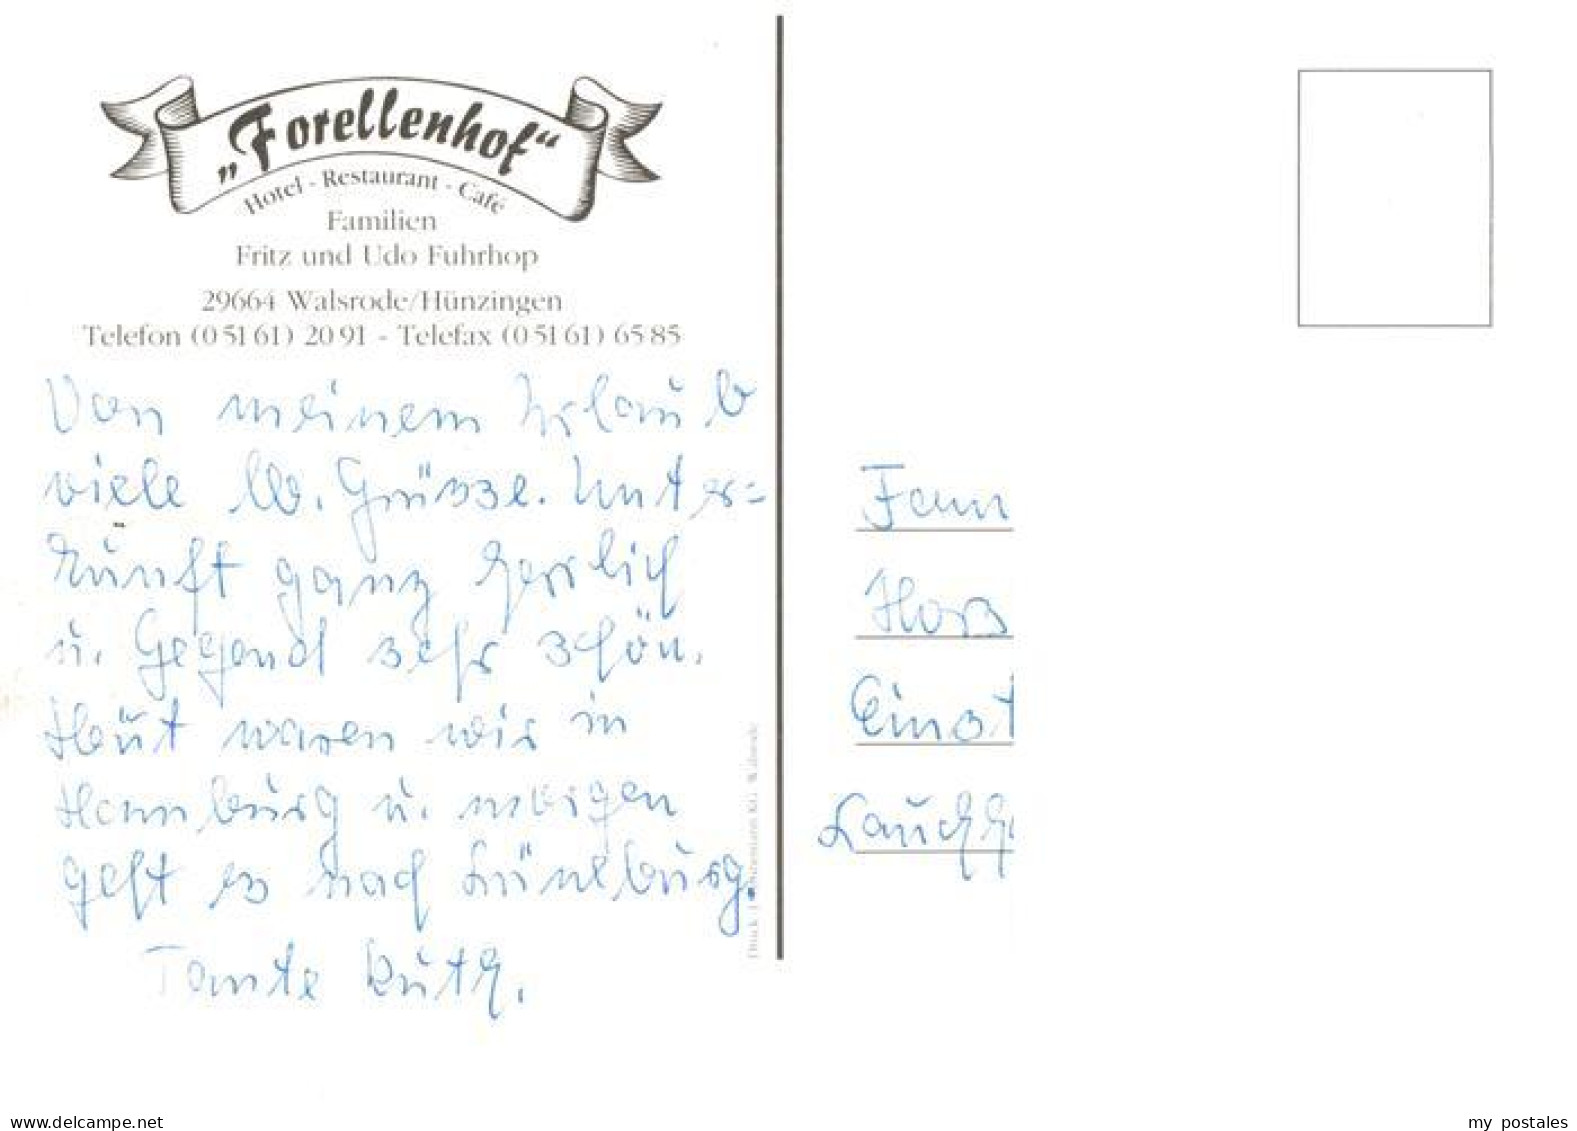 „Forellenhof“
Hotel - Restaurant - Café
Familien
Fritz und Udo Fuhrhop
29664 Walsrode/Hünzingen
Telefon (0 51 61) 20 91 - Telefax (0 51 61) 65 85
Von meinem Urlaub
viele lb. Grüsse. Unter=
kunft ganz herrlich
u. Gegend sehr schön.
Heut waren wir in
Hamburg u. morgen
geht es nach Lüneburg.
Tante Ruth.
Fam
Hors
Einst
Lauchh
KG Walsrode
delcampe.net
my postales